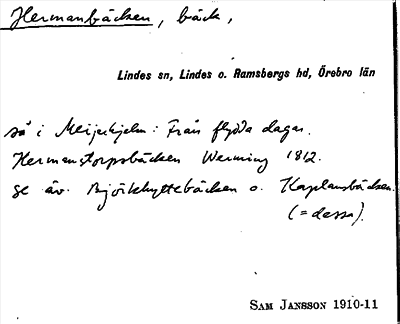 Hermanbäcken, bäck,
Lindes sn, Lindes o. Ramsbergs hd, Örebro län
så i Meijerhjelm: Från flydda dagar.
Hermanstorpsbäcken Werming 1812.
se äv. Björkhyttebäcken o. Kaplansbäcken.
(= dessa).
SAM JANSSON 1910-11